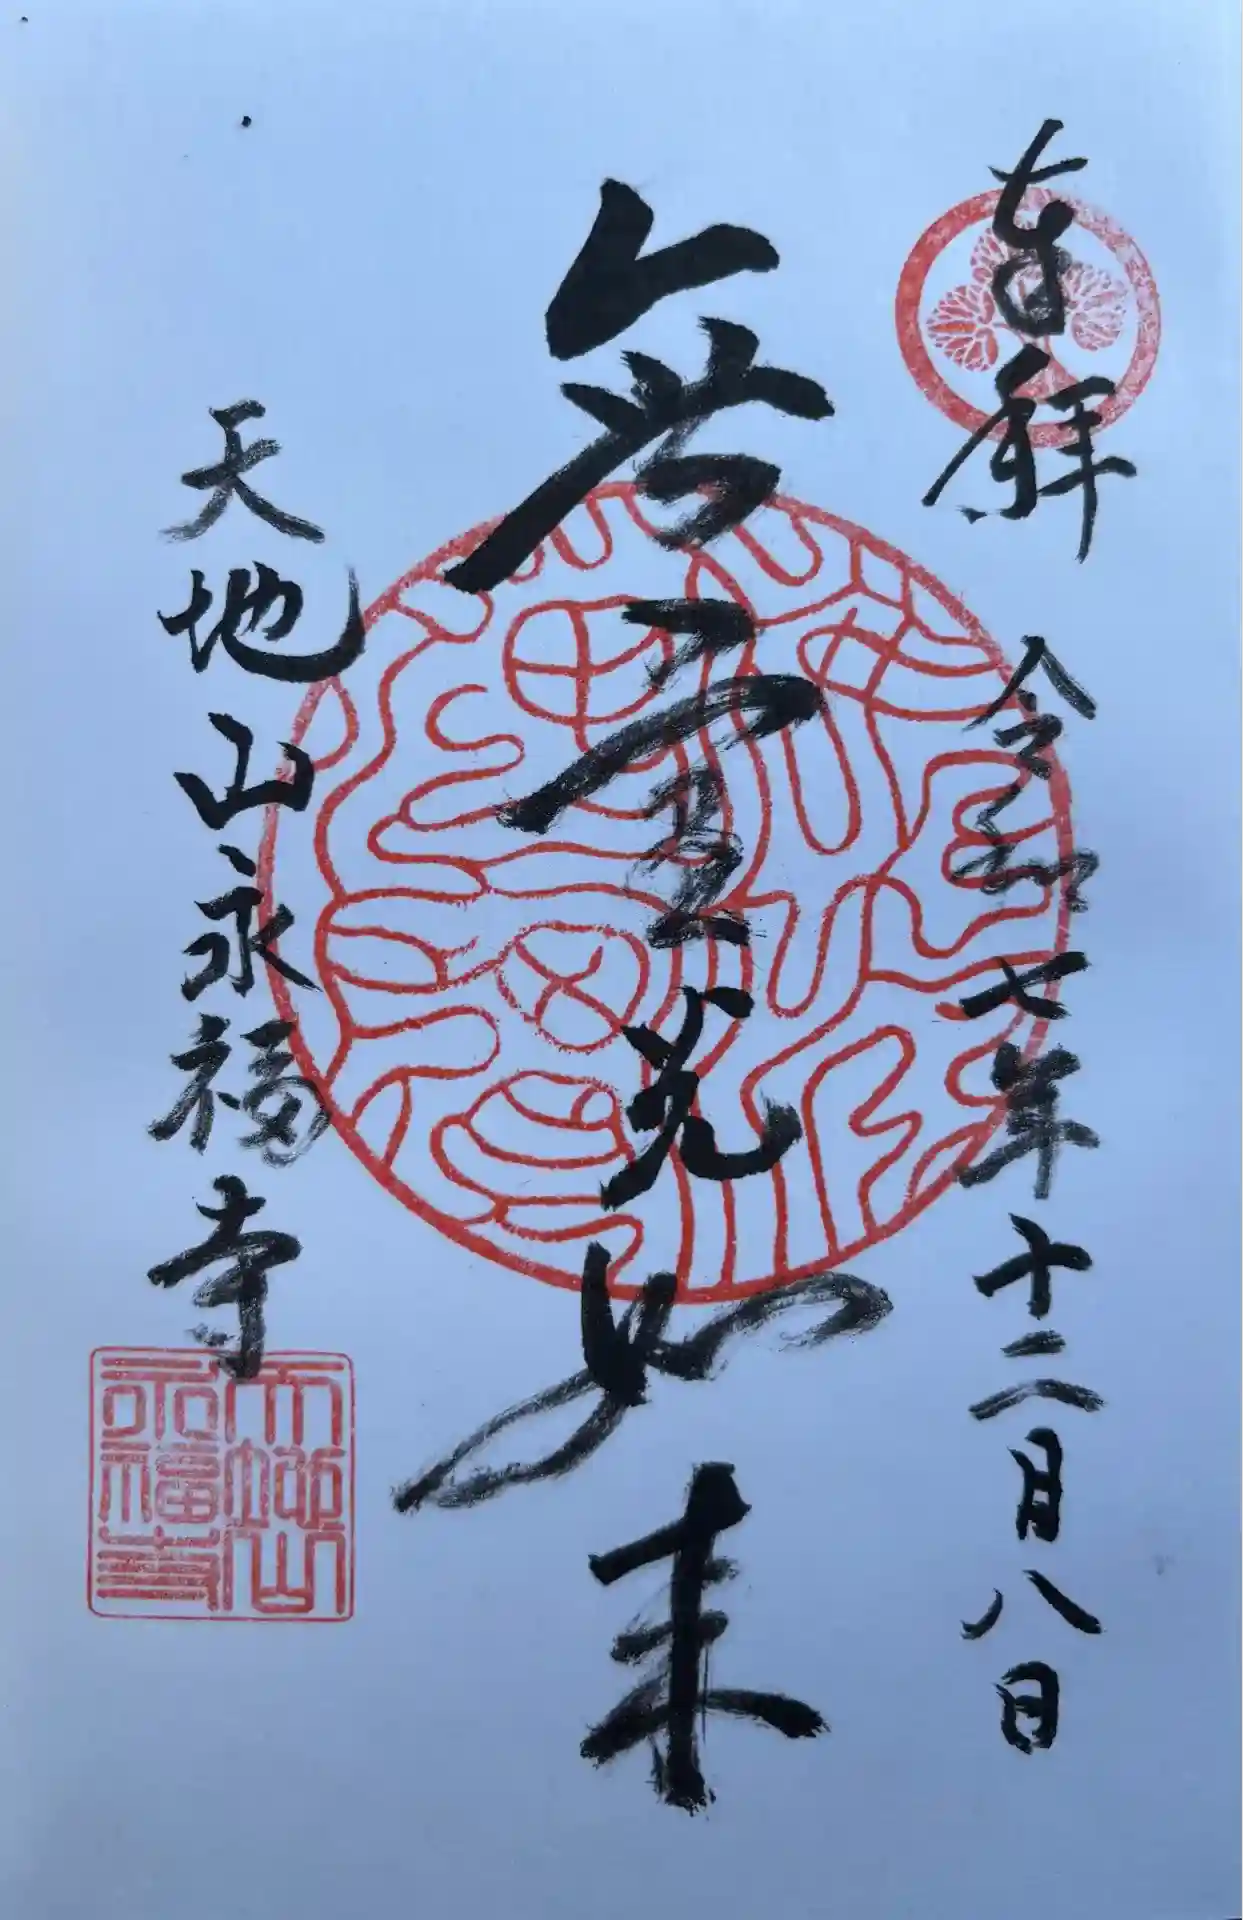 奉拝 令和七年十二月八日
無量光如来
天地山永福寺
天地山
永福寺